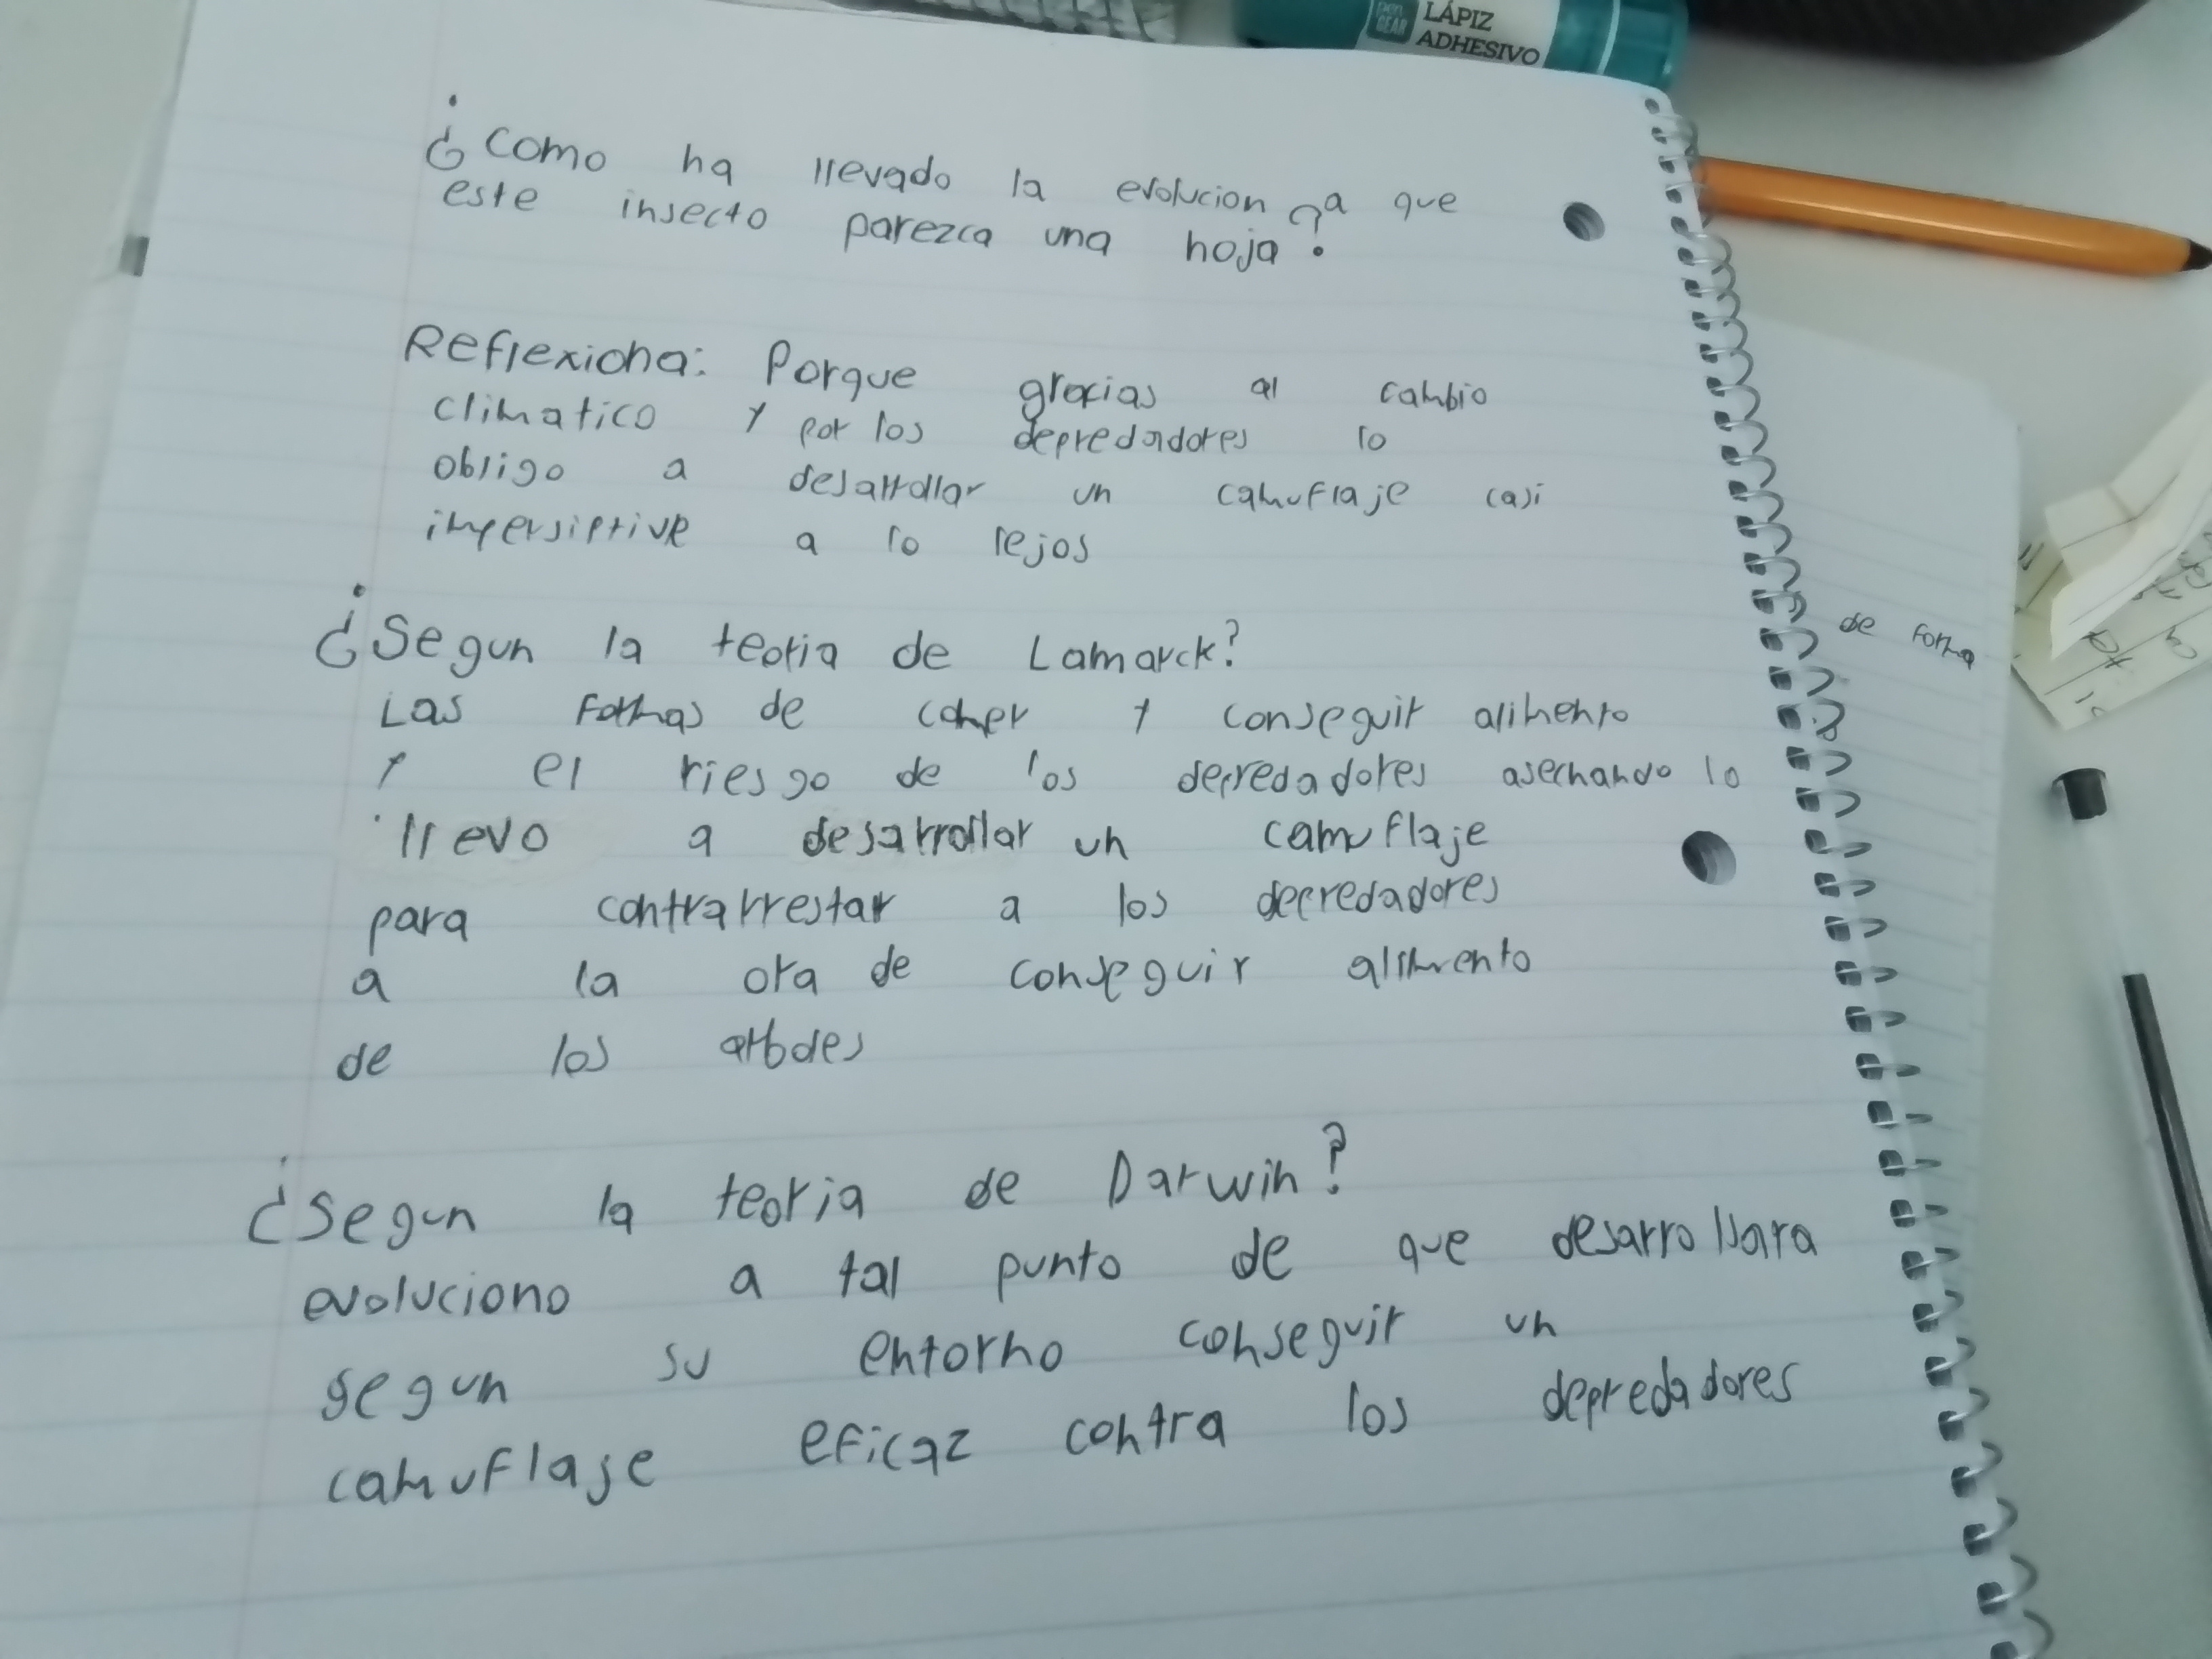 LÁPIZ
ADHESIVO
pen
GEAR
¿Como ha llevado la evolucion a que
este insecto parezca una hoja?
Reflexiona: Porque gracias al cambio
climatico y por los depredadores lo
obligo a desarrollar un camuflaje casi
impersiptive a lo lejos
¿Segun la teoria de Lamarck?
Las formas de comer y conseguir alimento
y el riesgo de los depredadores asechando lo
llevo a desarrollar un camuflaje
para contrarrestar a los depredadores
a la ora de conseguir alimento
de los arboles
¿Segun la teoria de Darwin?
evoluciono a tal punto de que desarrollara
segun su entorno conseguir un
camuflaje eficaz contra los depredadores
de forma